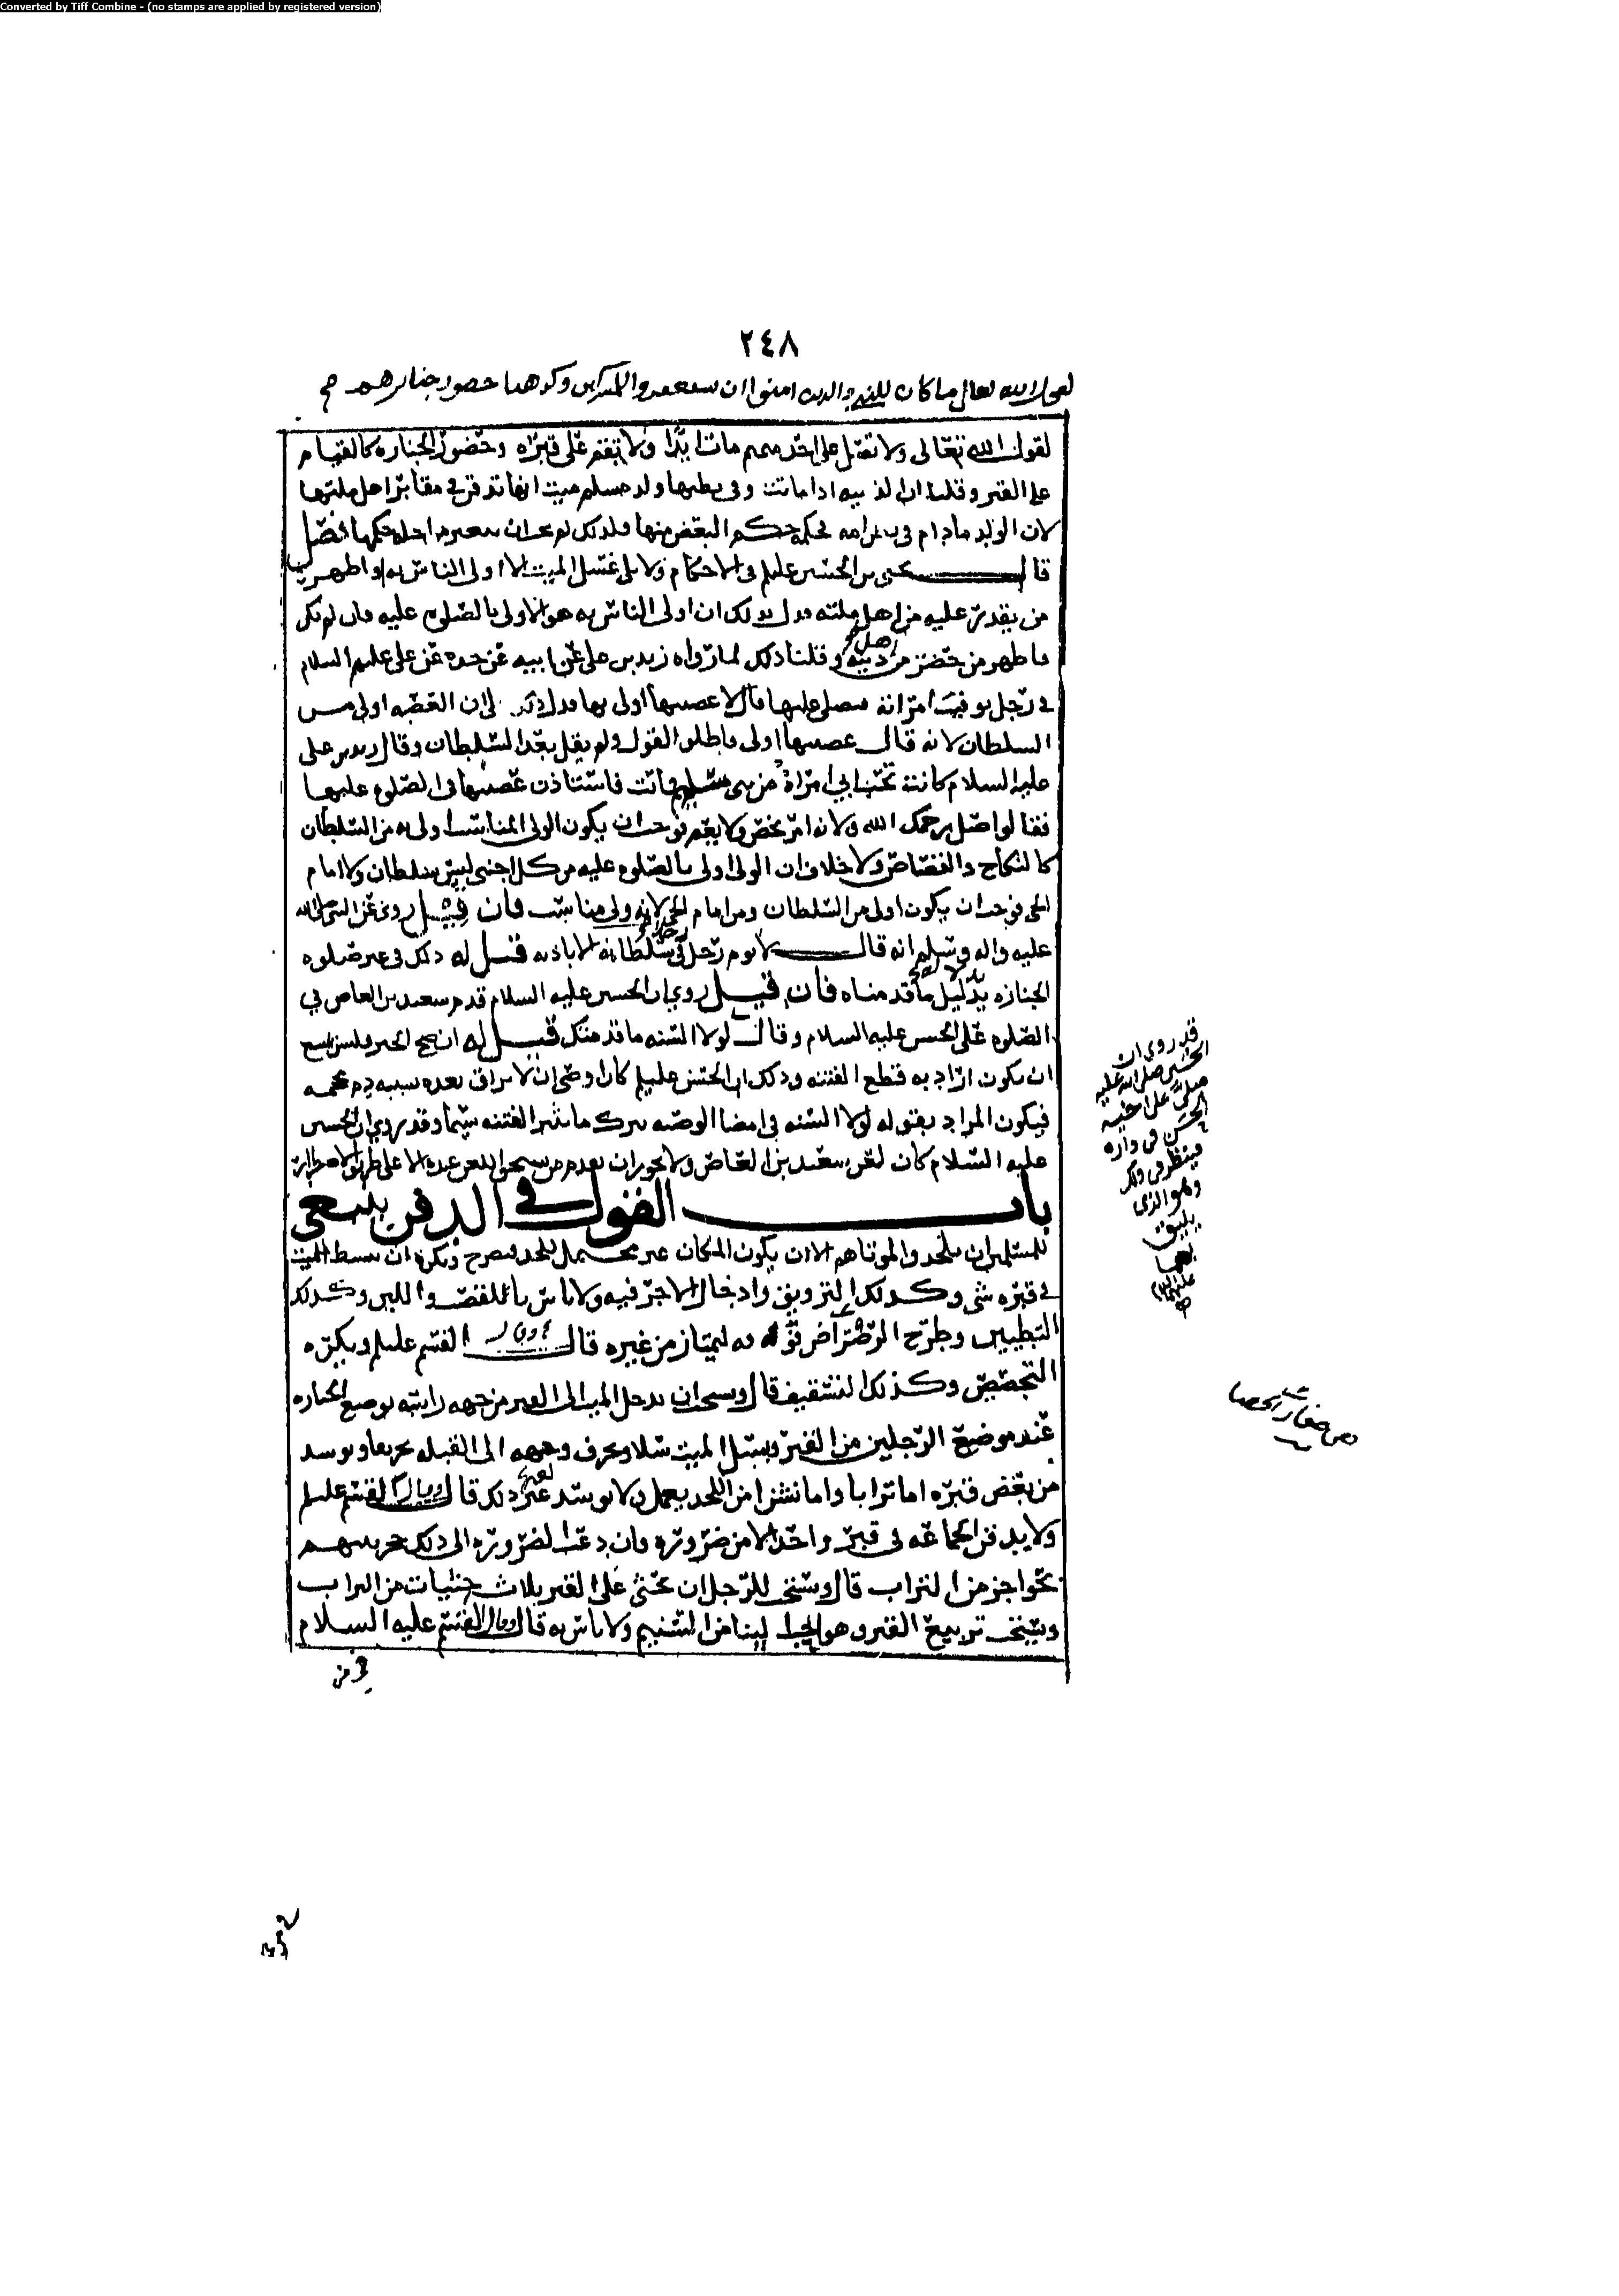 Converted by Tiff Combine - (no stamps are applied by registered version)
٢٤٨
لقول الله تعالى ما كان للنبي والذين امنوا ان يستغفروا للمشركين وكرهنا حضور جنائزهم
لقول الله تعالى ولا تصل على احد منهم مات ابدًا ولا تقم على قبره وحضور الجنازه كالقيام
على القبر وقلنا ان الذميه اذا ماتت وفي بطنها ولد مسلم ميت انها تدفن في مقابر اهل ملتها
لان الولد مادام في بطن امه فحكمه حكم البعض منها فلذلك لم يجب ان حكمها فصل
قال يحيى بن الحسين عليلم في الاحكام ولا يلي غسل الميت الا اولى الناس به او اطهر
من يقدر عليه من اهل ملته فدل بذلك ان اولى الناس به هو الاولى بالصلوه عليه فان لم يكن
فاطهر من حضر من اهل دينه وقلنا ذلك لما رواه زيد بن علي عن ابيه عن جده عن علي عليهم السلام
في رجل توفيت امرأته يصلي عليها قال لا عصبتها اولى بها فدل ذلك على ان العصبه اولى من
السلطان لانه قال عصبتها اولى فاطلق القول ولم يقل بعد السلطان وقال زيد بن علي
عليه السلام كانت تحت ابي امراة من بني سليم فماتت فاستاذن عصبتها في الصلوه عليها
فقالوا صل يرحمك الله ولانه امر يخص ولا يعم فوجب ان يكون الولي المناسب اولى به من السلطان
كالنكاح والقصاص ولا خلاف ان الولي اولى بالصلوه عليه من كل اجنبي ليس بسلطان ولا امام
الحي فوجب ان يكون اولى من السلطان ومن امام الحي لانه ولي مناسب فان قيل روي عن النبي صلى الله
عليه واله وسلم انه قال لا يوم رجل في سلطانه الا باذنه قيل له ذلك في غير صلوه
الجنازه بدليل ما قدمناه فان قيل روي ان الحسين عليه السلام قدم سعيد بن العاص في
الصلوه على الحسن عليه السلام وقال لولا السنه ما قدمتك قيل له ان صح الخبر فليس يمتنع
ان يكون اراد به قطع الفتنه وذلك ان الحسن عليلم كان اوصى ان لا يراق بعده بسببه دم محجمه
فيكون المراد بقوله لولا السنه في امضا الوصيه بترك ما يثير الفتنه سيما وقد روي ان الحسين
عليه السلام كان لعن سعيد بن العاص ولا يجوز ان يقدم من يستحق اللعن عنده الا على طريق الاضطرار
باب القول في الدفن ينبغي
للمسلمين ان يلحدوا لموتاهم الا ان يكون المكان غير محتمل للحد فيضرح ويكره ان يبسط للميت
في قبره شي وكذلك التزويق وادخال الاجر فيه ولا باس بالقصب واللبن وكذلك
التطيين وطرح الرضراض فوقه به ليمتاز من غيره قال القسم عليلم ويكره
التجصيص وكذلك التسقيف قال ويستحب ان يدخل الميت الى القبر من جهه راسه توضع الجنازه
عند موضع الرجلين من القبر ويسل الميت سلا ويحرف وجهه الى القبله تحريفا ويوسد
من بعض قبره اما ترابا واما نشزا من اللحد يعمل ولا يوسد غير ذلك قال القسم عليلم
ولا يدفن الجماعه في قبر واحد الا من ضروره فان دعت الضروره الى ذلك حجز بينهم
بحواجز من التراب قال ويستحب للرجل ان يحثي على القبر بثلاث حثيات من التراب
ويستحب تربيع القبر وهو احب الينا من التسنيم ولا باس به قال القسم عليه السلام
قد روي ان
الحسين صلى الله عليه
صلى على اخيه
الحسن في داره
فينظر في ذلك
وهو الذي
يليق
بهما
عليهما السلام
من صغار الحصا